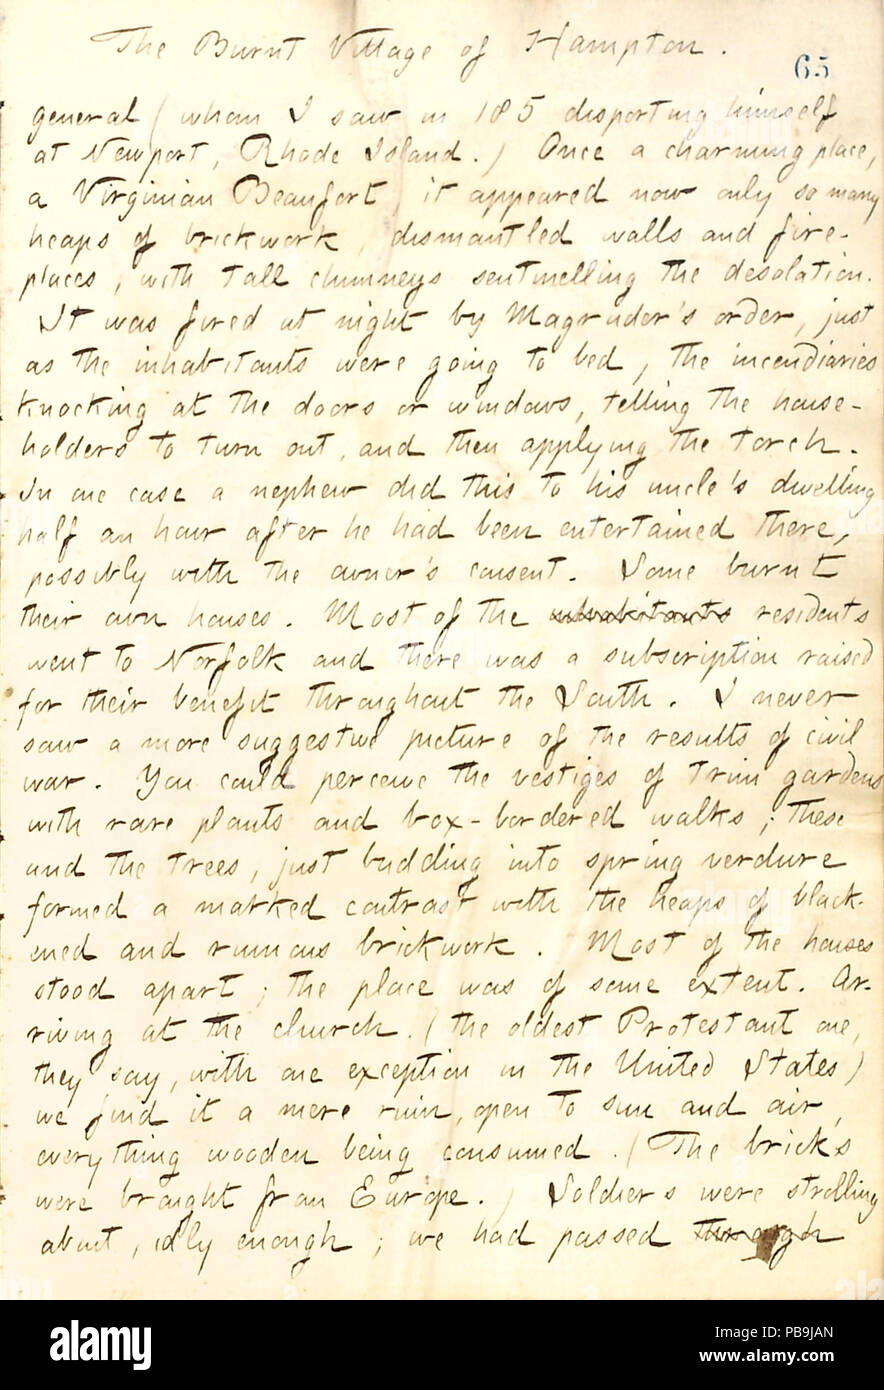 The Burnt Village of Hampton.
65
general (whom I saw in 185 disporting himself
at Newport, Rhode Island.) Once a charming place,
a Virginian Beaufort, it appeared now only so many
heaps of brickwork, dismantled walls and fire-
places, with tall chimneys sentinelling the desolation.
It was fired at night by Magruder's order, just
as the inhabitants were going to bed, the incendiaries
knocking at the doors or windows, telling the house-
holders to turn out, and then applying the torch.
In one case a nephew did this to his uncle's dwelling
half an hour after he had been entertained there,
possibly with the owner's consent. Some burnt
their own houses. Most of the inhabitants residents
went to Norfolk and there was a subscription raised
for their benefit throughout the South. I never
saw a more suggestive picture of the results of civil
war. You could perceive the vestiges of trim gardens
with rare plants and box-bordered walks; these
and the trees, just budding into spring verdure
formed a marked contrast with the heaps of black-
ened and ruinous brickwork. Most of the houses
stood apart; the place was of some extent. Ar-
riving at the church. (the oldest Protestant one,
they say, with one exception in the United States)
we find it a mere ruin, open to sun and air,
everything wooden being consumed. (The brick's
were brought from Europe.) Soldiers were strolling
about, idly enough; we had passed through
alamy
Image ID: PB9JAN
www.alamy.com